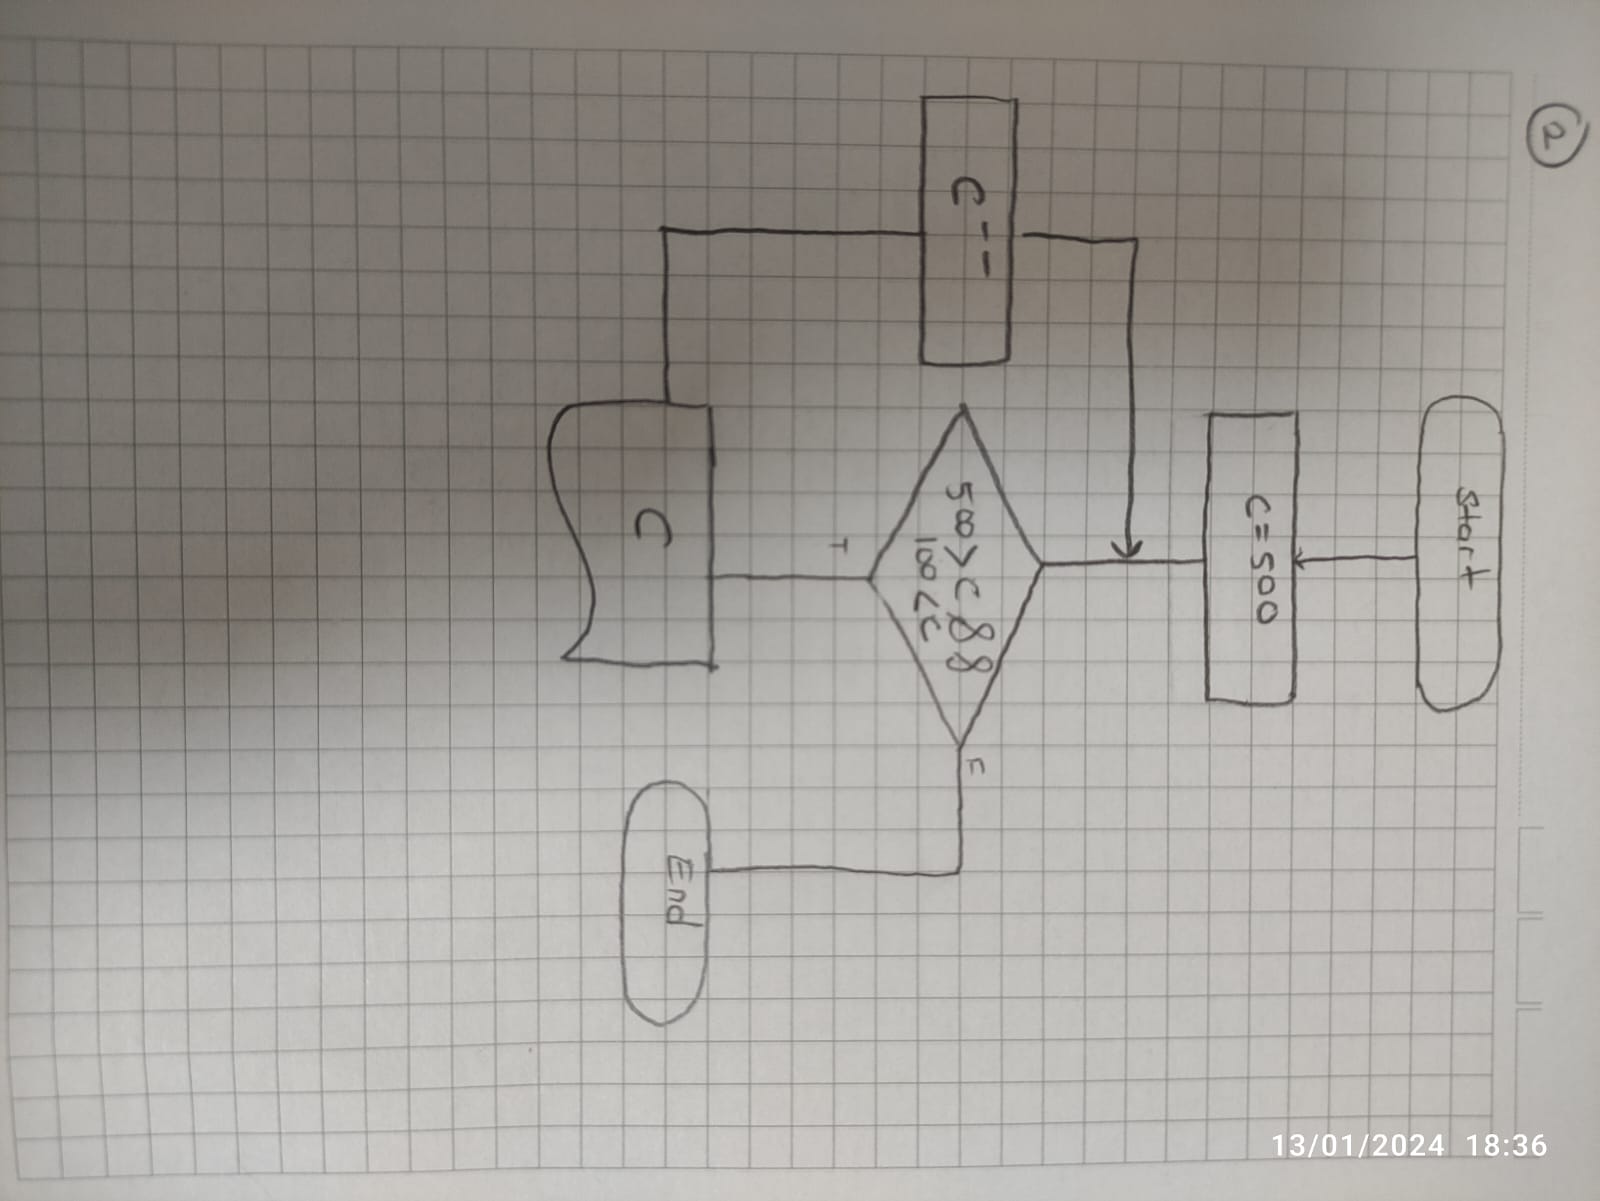 2
Start
C=500
500>C &&
100<C
F
T
C--
C
End
13/01/2024 18:36